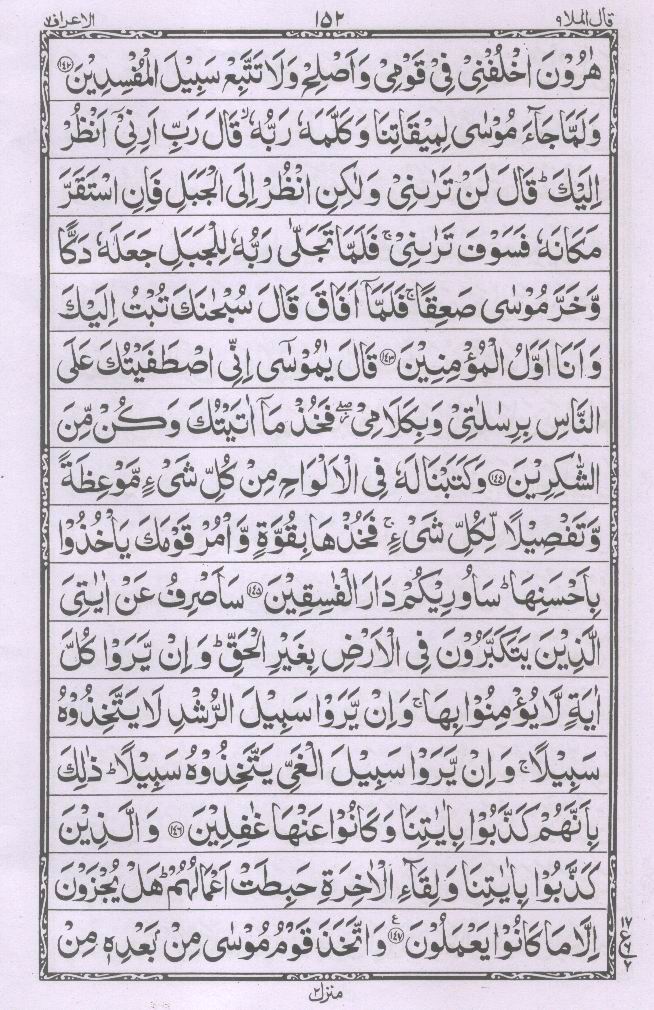 قال الملا ٩ ١٥٢ الاعراف ٧
هٰرُوْنَ اخْلُفْنِیْ فِیْ قَوْمِیْ وَاَصْلِحْ وَلَا تَتَّبِعْ سَبِیْلَ الْمُفْسِدِیْنَ ﴿۱۴۲﴾
وَلَمَّا جَآءَ مُوْسٰی لِمِیْقَاتِنَا وَكَلَّمَهٗ رَبُّهٗ ۙ قَالَ رَبِّ اَرِنِیْۤ اَنْظُرْ
اِلَیْكَ ؕ قَالَ لَنْ تَرٰىنِیْ وَلٰكِنِ انْظُرْ اِلَی الْجَبَلِ فَاِنِ اسْتَقَرَّ
مَكَانَهٗ فَسَوْفَ تَرٰىنِیْ ۚ فَلَمَّا تَجَلّٰی رَبُّهٗ لِلْجَبَلِ جَعَلَهٗ دَكًّا
وَّخَرَّ مُوْسٰی صَعِقًا ۚ فَلَمَّاۤ اَفَاقَ قَالَ سُبْحٰنَكَ تُبْتُ اِلَیْكَ
وَاَنَا اَوَّلُ الْمُؤْمِنِیْنَ ﴿۱۴۳﴾ قَالَ یٰمُوْسٰۤی اِنِّی اصْطَفَیْتُكَ عَلَی
النَّاسِ بِرِسٰلٰتِیْ وَبِكَلَامِیْ ۖ فَخُذْ مَاۤ اٰتَیْتُكَ وَكُنْ مِّنَ
الشّٰكِرِیْنَ ﴿۱۴۴﴾ وَكَتَبْنَا لَهٗ فِی الْاَلْوَاحِ مِنْ كُلِّ شَیْءٍ مَّوْعِظَةً
وَّتَفْصِیْلًا لِّكُلِّ شَیْءٍ ۚ فَخُذْهَا بِقُوَّةٍ وَّاْمُرْ قَوْمَكَ یَاْخُذُوْا
بِاَحْسَنِهَا ؕ سَاُورِیْكُمْ دَارَ الْفٰسِقِیْنَ ﴿۱۴۵﴾ سَاَصْرِفُ عَنْ اٰیٰتِیَ
الَّذِیْنَ یَتَكَبَّرُوْنَ فِی الْاَرْضِ بِغَیْرِ الْحَقِّ ؕ وَاِنْ یَّرَوْا كُلَّ
اٰیَةٍ لَّا یُؤْمِنُوْا بِهَا ۚ وَاِنْ یَّرَوْا سَبِیْلَ الرُّشْدِ لَا یَتَّخِذُوْهُ
سَبِیْلًا ۚ وَاِنْ یَّرَوْا سَبِیْلَ الْغَیِّ یَتَّخِذُوْهُ سَبِیْلًا ؕ ذٰلِكَ
بِاَنَّهُمْ كَذَّبُوْا بِاٰیٰتِنَا وَكَانُوْا عَنْهَا غٰفِلِیْنَ ﴿۱۴۶﴾ وَالَّذِیْنَ
كَذَّبُوْا بِاٰیٰتِنَا وَلِقَآءِ الْاٰخِرَةِ حَبِطَتْ اَعْمَالُهُمْ ؕ هَلْ یُجْزَوْنَ
اِلَّا مَا كَانُوْا یَعْمَلُوْنَ ﴿۱۴۷﴾ ع وَاتَّخَذَ قَوْمُ مُوْسٰی مِنْۢ بَعْدِهٖ مِنْ
۱۷
ع
۶
۲
منزل ۲